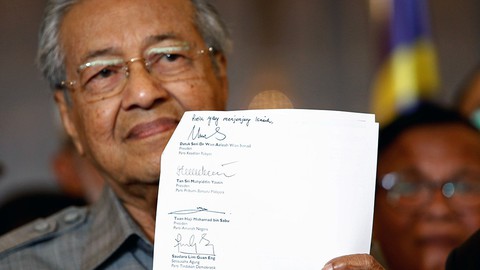 yang menjunjung
Datuk Seri Dr Wan Azizah Wan Ismail
Presiden
Parti Keadilan Rakyat
Tan Sri Muhyiddin Yassin
Presiden
Parti Pribumi Bersatu Malaysia
Tuan Haji Mohamad bin Sabu
Presiden
Parti Amanah Negara
Saudara Lim Guan Eng
Setiausaha Agung
Parti Tindakan Demokratik